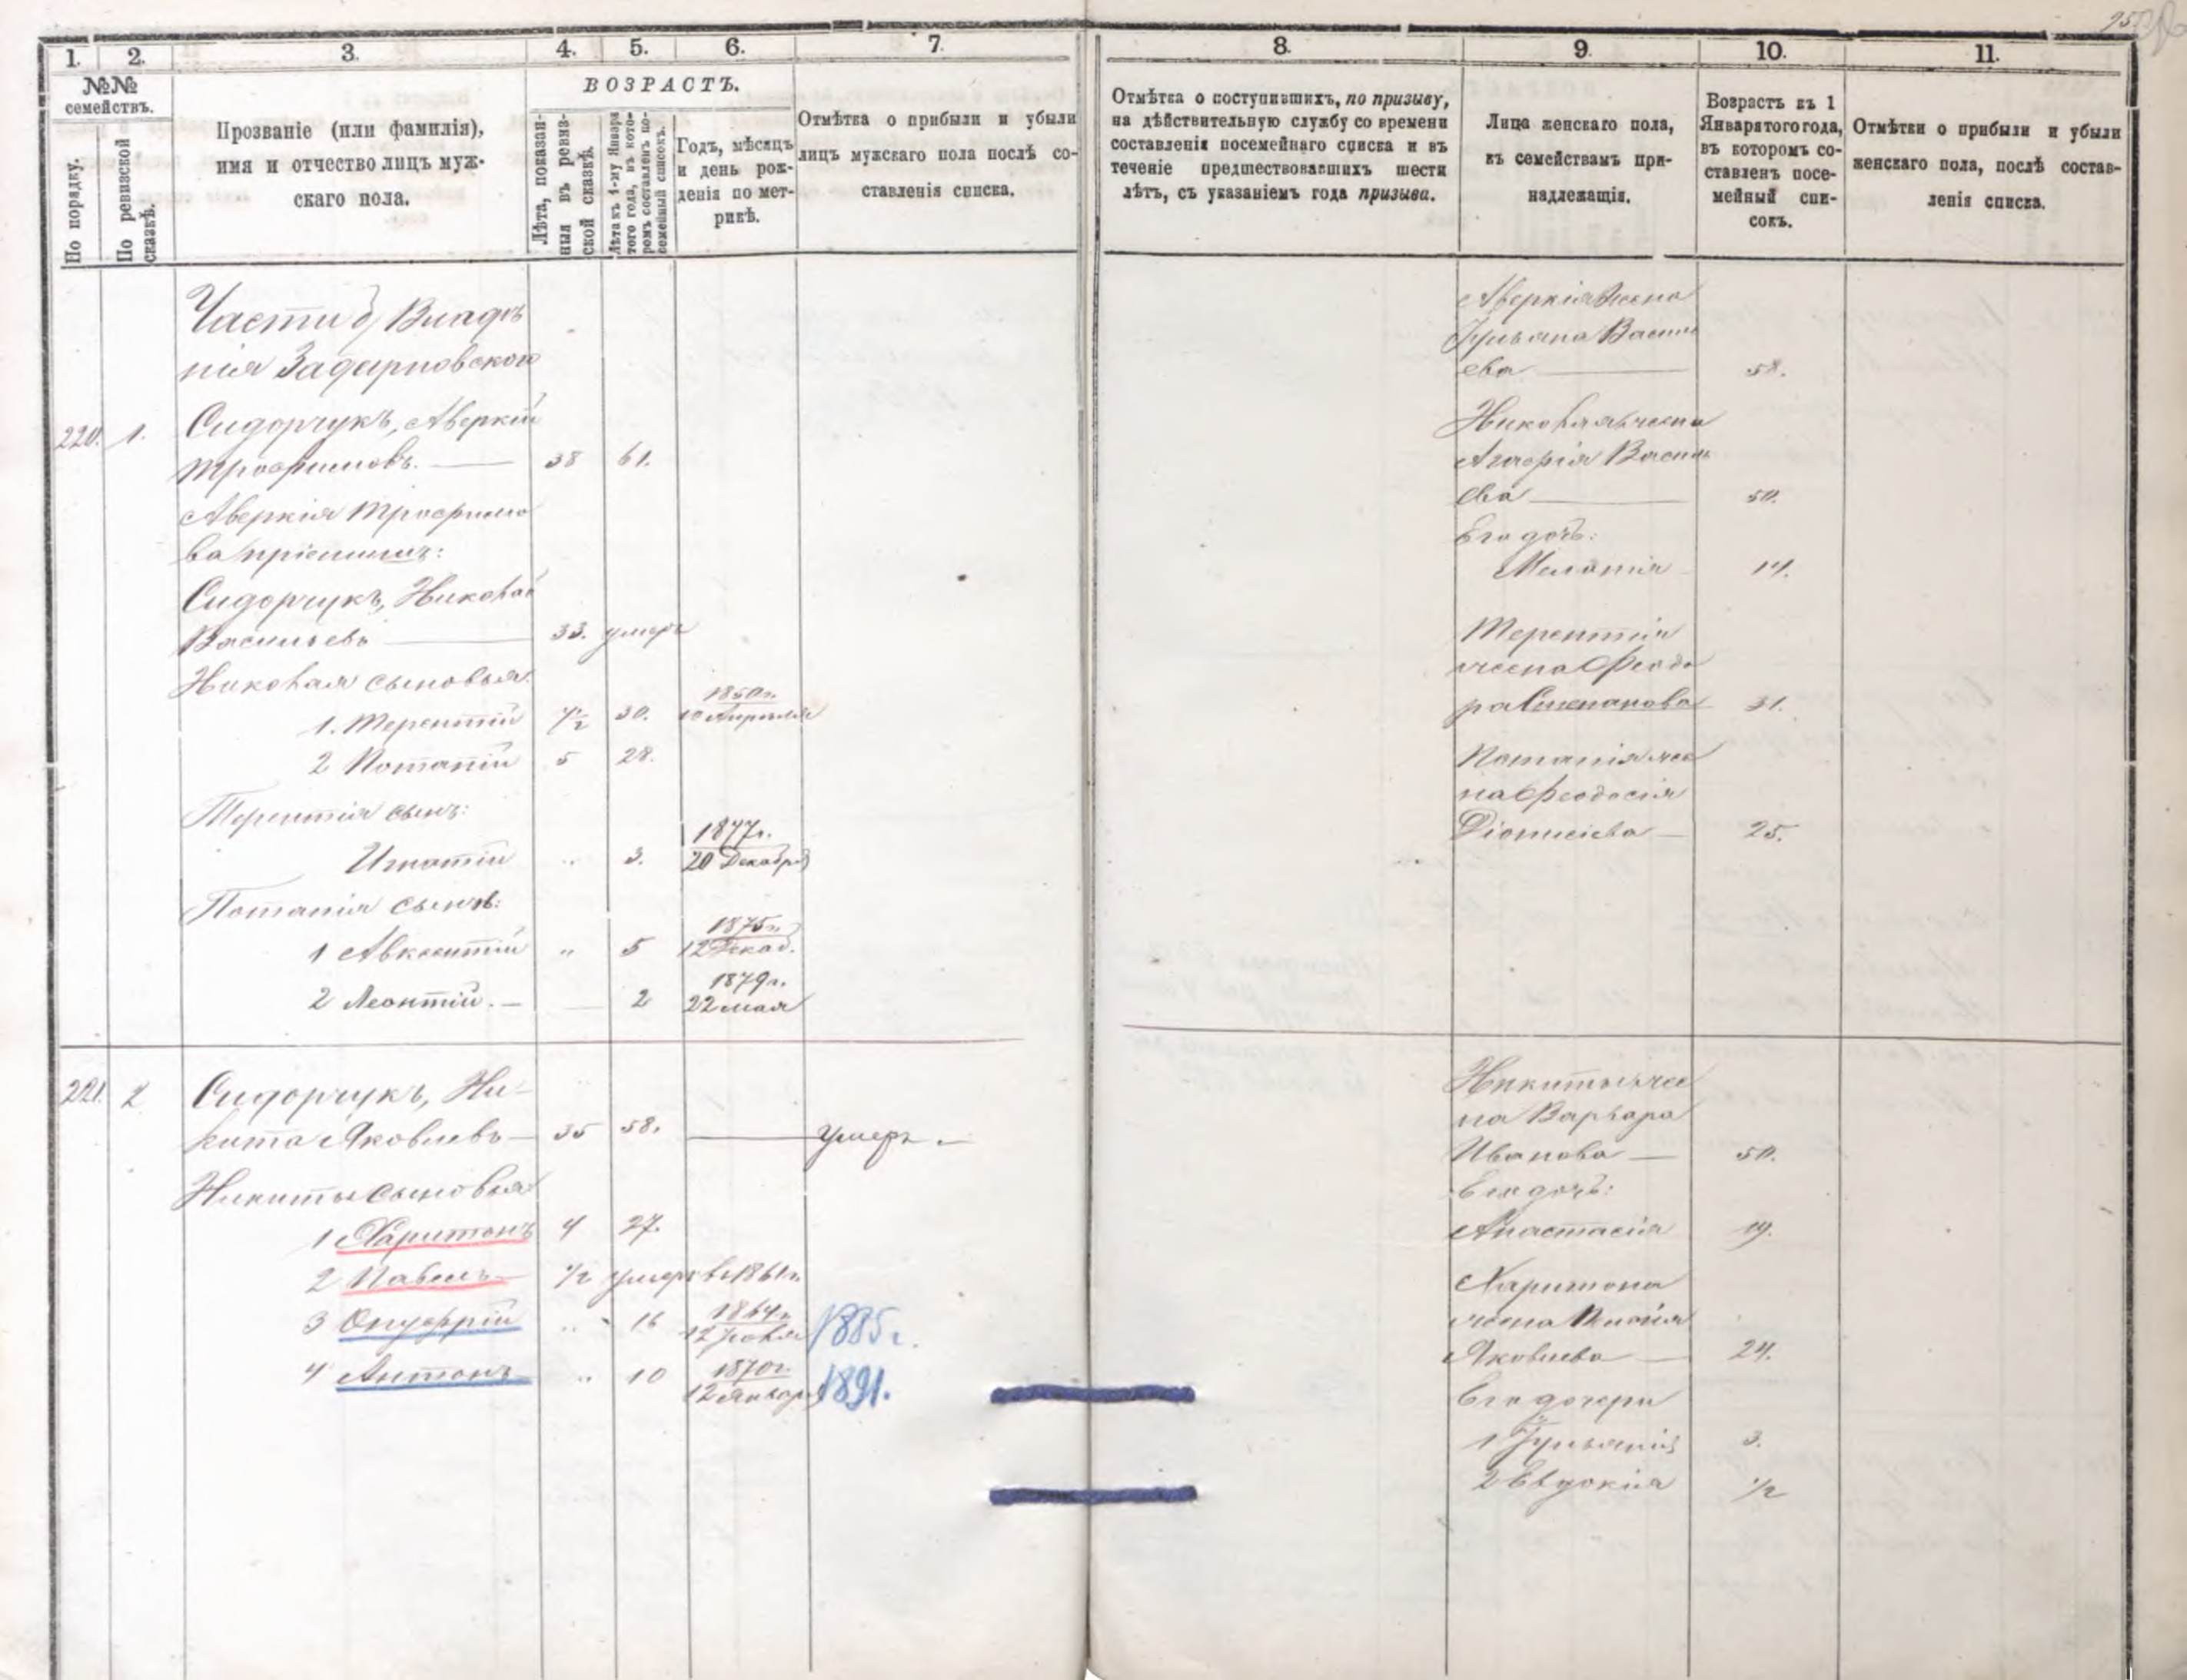 95
1.
2.
3.
4.
5.
6.
7.
№№
семействъ.
По порядку.
По ревизской
сказкѣ.
Прозваніе (или фамилія),
имя и отчество лицъ муж-
скаго пола.
ВОЗРАСТЪ.
Лѣта, показан-
ныя въ ревиз-
ской сказкѣ.
Лѣта къ 1-му Января
того года, въ кото-
ромъ составленъ по-
семейный списокъ.
Годъ, мѣсяцъ
и день рож-
денія по мет-
рикѣ.
Отмѣтка о прибыли и убыли
лицъ мужскаго пола послѣ со-
ставленія списка.
Части Владѣ
нія
220. 1. Сидорчукъ, Аверкій
Трофимовъ. 38 61.
Аверкія Трофимо
ва пріемышъ:
Сидорчукъ, Николай
Васильевъ 33. умеръ
Николая сыновья:
1. Терентій 7½ 30. 1850 г. 10 Апрѣля
2 Потапій 5 28.
Терентія сынъ:
Игнатій „ 3. 1877 г. 20 Декабря
Потапія сынъ:
1 Авксентій „ 5 1875 г. 12 Декаб.
2 Леонтій. 2 1879 г. 22 мая
221. 2 Сидорчукъ, Ни-
кита Яковлевъ 35 58. умеръ
Никиты сыновья
1 Харитонъ 4 27.
2 Павелъ ½ умеръ въ 1861 г.
3 Онуфрій „ 16 1864 г. 12 1885 г.
4 Антонъ „ 10 1870 г. 12 Января 1891.
8.
9.
10.
11.
Отмѣтка о поступившихъ, по призыву,
на дѣйствительную службу со времени
составленія посемейнаго списка и въ
теченіе предшествовавшихъ шести
лѣтъ, съ указаніемъ года призыва.
Лица женскаго пола,
къ семействамъ при-
надлежащія.
Возрастъ къ 1
Января того года,
въ которомъ со-
ставленъ посе-
мейный спи-
сокъ.
Отмѣтки о прибыли и убыли
женскаго пола, послѣ состав-
ленія списка.
Аверкія жена
Ульяна Василь
ева 58.
Николая жена
Агафія Василь
ева 50.
Его дочь:
Меланія 14.
Терентія
жена Феодо
ра Степанова 31.
Потапія же
на Феодосія
Діонисіева 25.
Никиты же
на Варвара
Иванова 50.
Его дочь:
Анастасія 19.
Харитона
жена
Яковлева 24.
Его дочери
1 Ульянія 3.
2 Евдокія ½